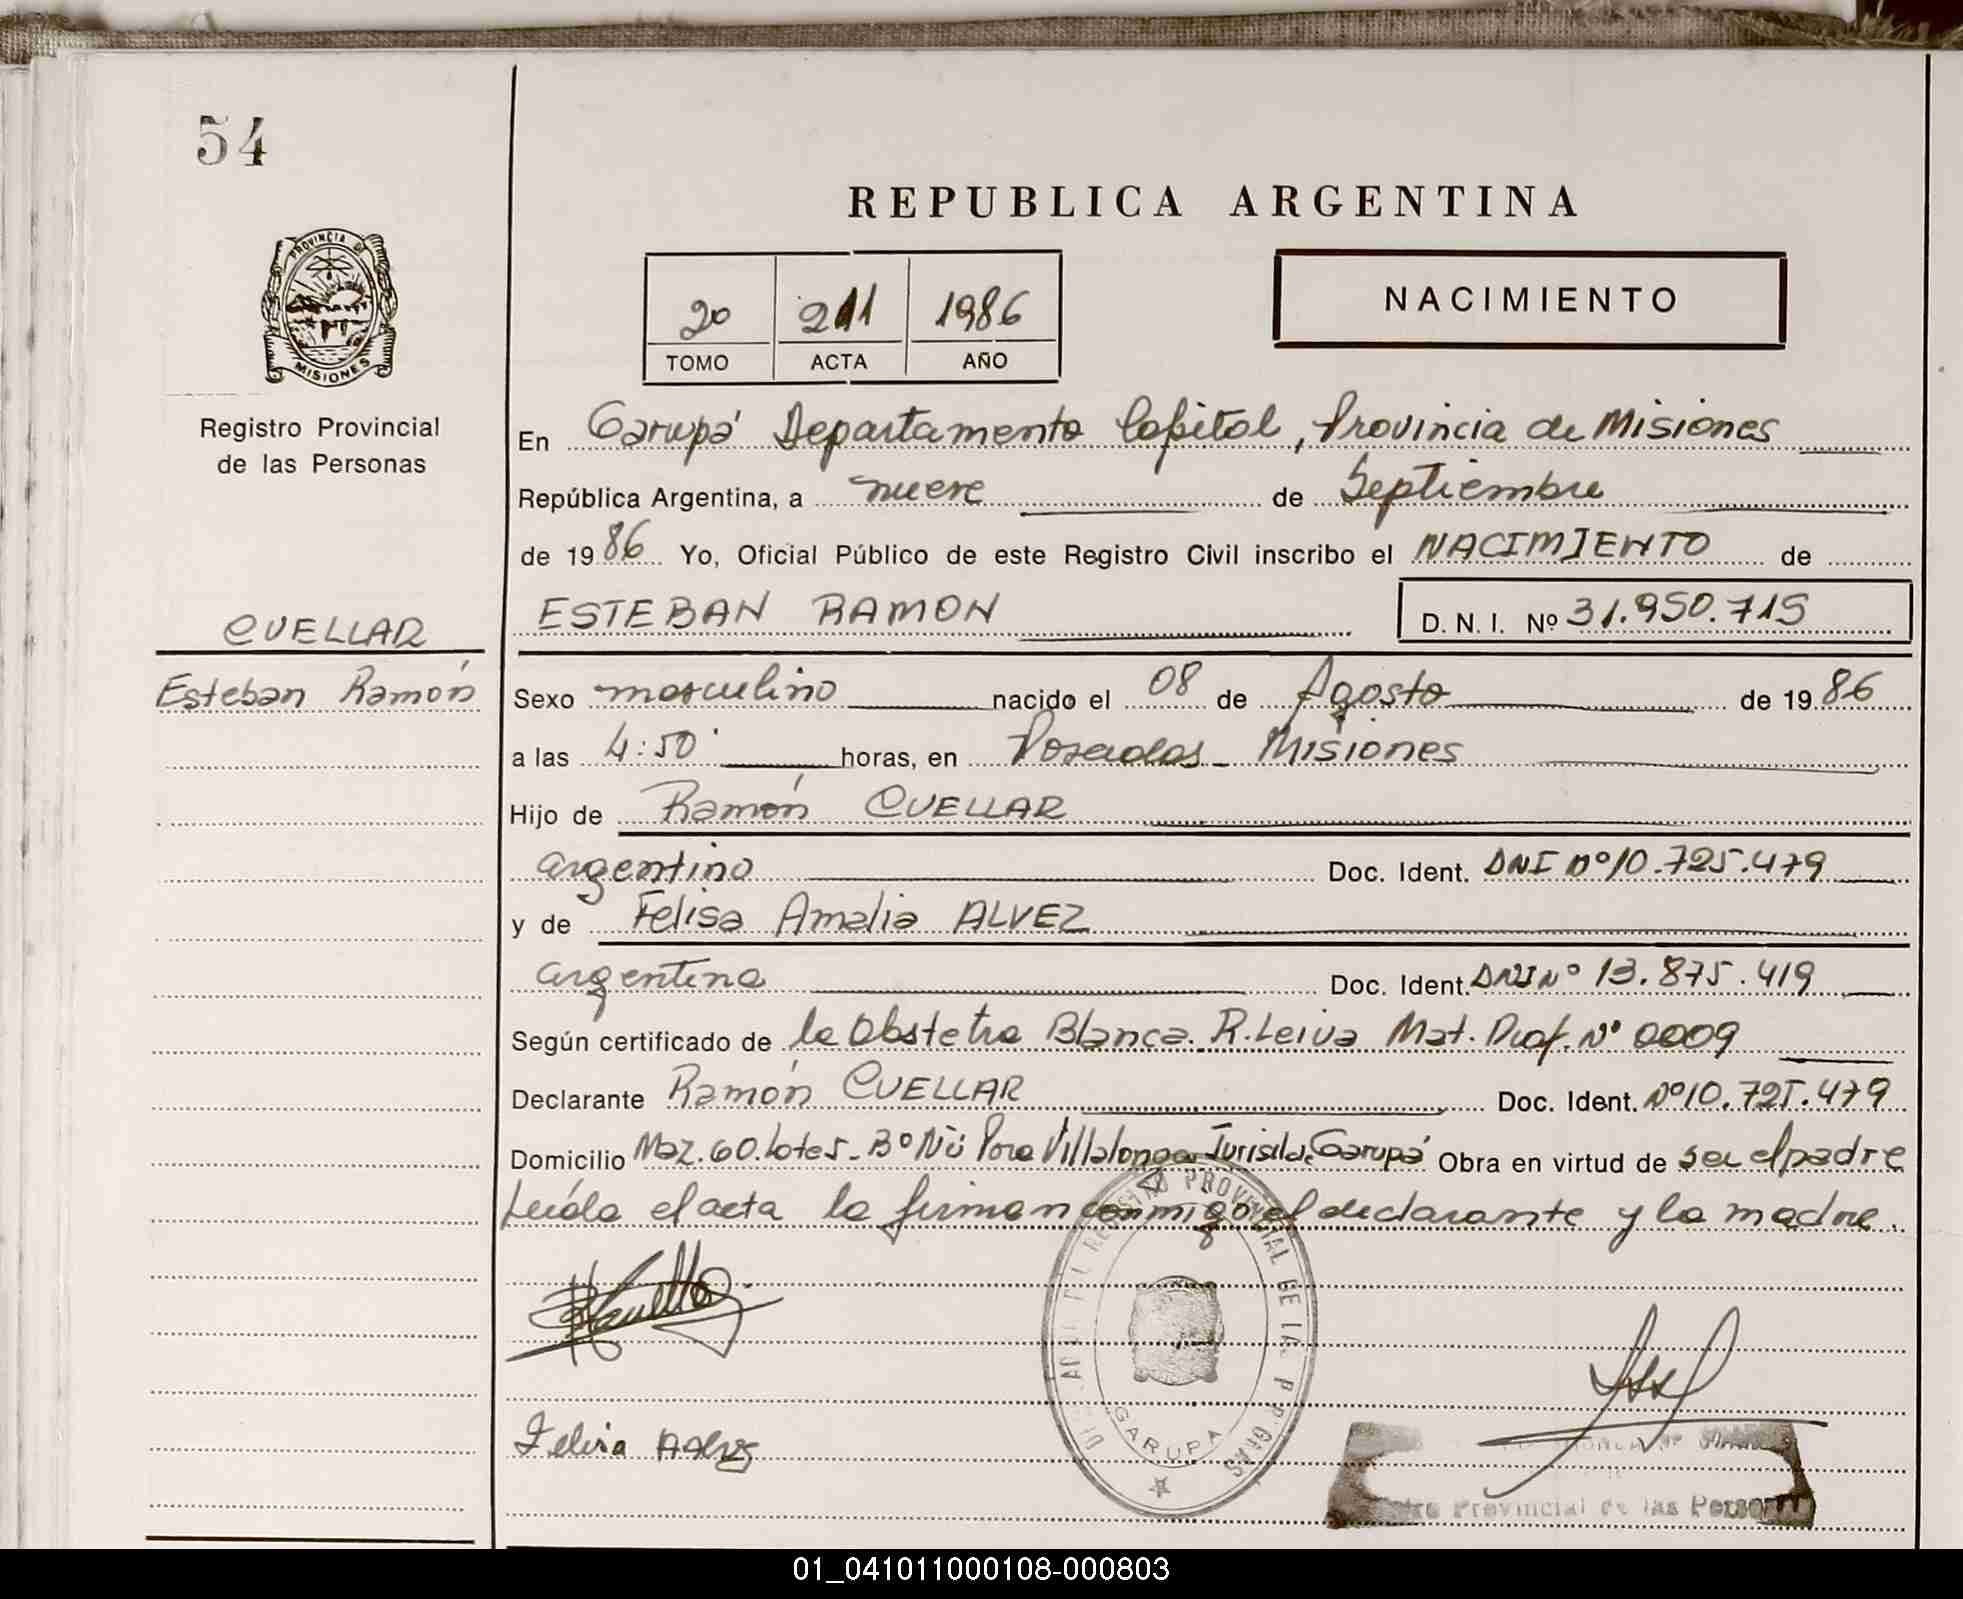 54
REPUBLICA ARGENTINA
PROVINCIA DE
MISIONES
Registro Provincial
de las Personas
20 211 1986
TOMO ACTA AÑO
NACIMIENTO
En Garupá Departamento Capital, Provincia de Misiones
República Argentina, a nueve de Septiembre
de 1986 Yo, Oficial Público de este Registro Civil inscribo el NACIMIENTO de
CUELLAR
ESTEBAN RAMON D. N. I. Nº 31.950.715
Esteban Ramón
Sexo masculino nacido el 08 de Agosto de 1986
a las 4:50 horas, en Posadas - Misiones
Hijo de Ramón CUELLAR
argentino Doc. Ident. DNI Nº 10.725.479
y de Felisa Amalia ALVEZ
argentina Doc. Ident. DNI Nº 13.875.419
Según certificado de la Obstetra Blanca R. Leiva Mat. Prof. Nº 0009
Declarante Ramón CUELLAR Doc. Ident. Nº 10.725.479
Domicilio Maz. 60. Lote 5 - Bº Ñu Pora Villalonga Garupá Obra en virtud de ser el padre
Leída el acta la firman conmigo el declarante y la madre.
REGISTRO PROVINCIAL DE LAS
GARUPA
Provincial de las
01_041011000108-000803